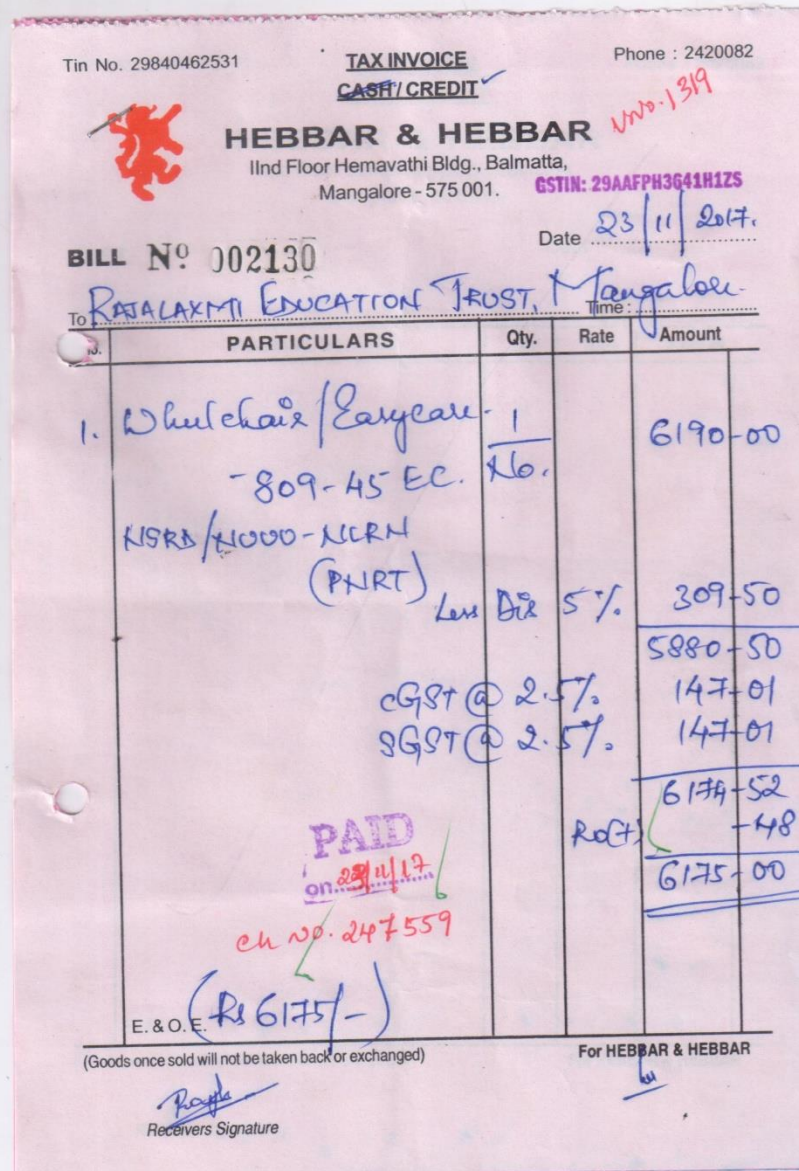 Tin No. 29840462531 TAX INVOICE Phone : 2420082
CASH / CREDIT ✓
VNo. 1319
HEBBAR & HEBBAR
IInd Floor Hemavathi Bldg., Balmatta,
Mangalore - 575 001. GSTIN: 29AAFPH3641H1ZS
Date 23/11/2017.
BILL Nº 002130
To RAJALAXMI EDUCATION TRUST, Mangalore.
Time :
PARTICULARS Qty. Rate Amount
1. Wheelchair/Easycare- 1 No. 6190-00
-809-45 EC.
(PNRT)
Less Dis 5% 309-50
5880-50
CGST @ 2.5% 147-01
SGST @ 2.5% 147-01
6174-52
Ro(+) -48
6175-00
PAID
on 11/17
Ch No. 247559
(Rs 6175/-)
E. & O. E.
(Goods once sold will not be taken back or exchanged) For HEBBAR & HEBBAR
Receivers Signature